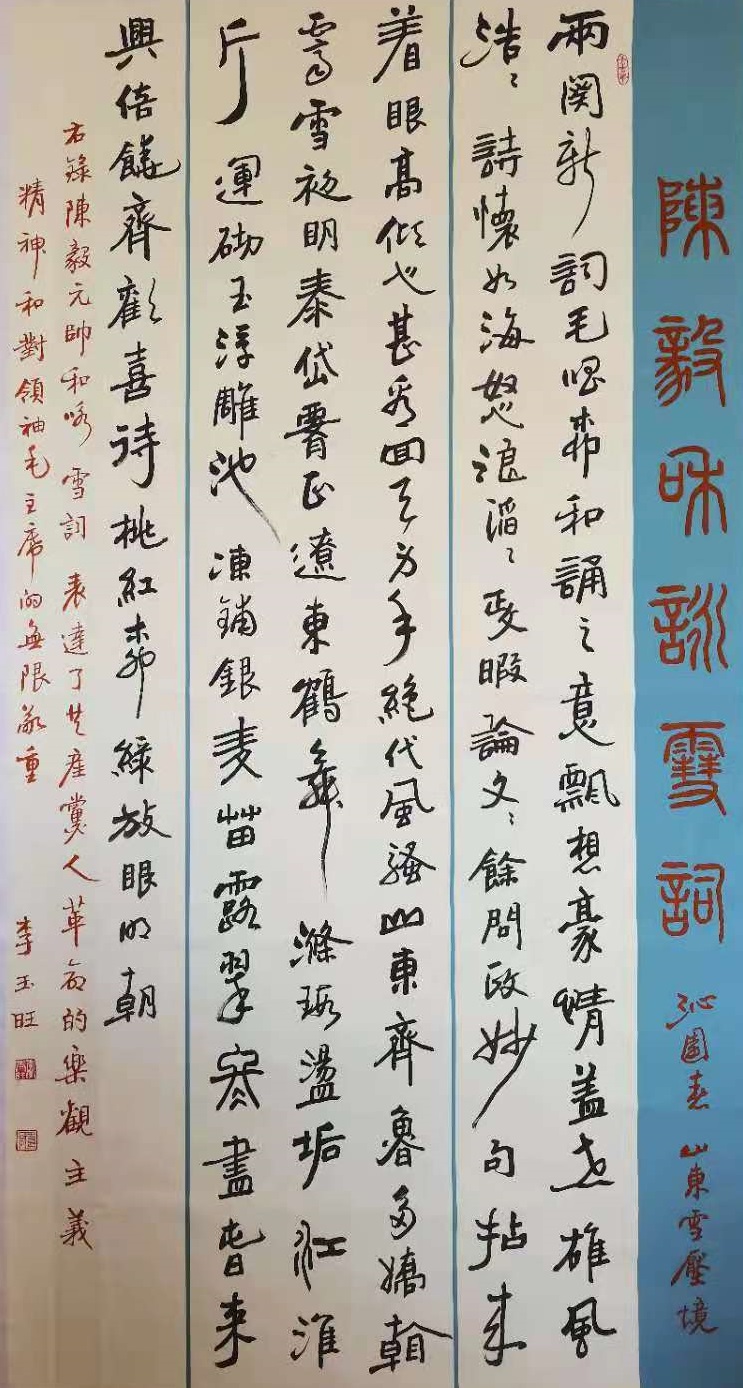 陳毅和詠雪詞 沁園春 山東雪壓境
兩闋新詞毛唱柳和誦之意飄想豪情蓋世雄風
浩〻詩懷如海怒浪滔〻政暇論文〻餘問政妙句拈來
着眼高傾心甚看回天身手絕代風騷山東齊魯多嬌
霽雪初明泰岱正遼東鶴舞滌瑕盪垢江淮
斤運砌玉浮雕池凍鋪銀麦苗露翠冬盡春来
興倍饒齊歡喜待桃紅柳綠放眼明朝
右錄陳毅元帥和咏雪詞表達了共産黨人革命的樂觀主義
精神和對領袖毛主席的無限敬重 李玉旺